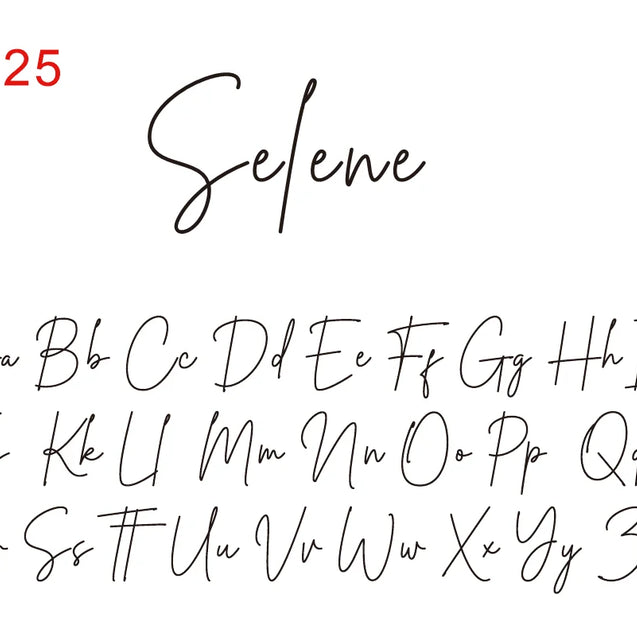 25
Selene
a Bb Cc Dd Ee Ff Gg Hh
Kk Ll Mm Nn Oo Pp Qq
Ss Tt Uu Vv Ww Xx Yy Z